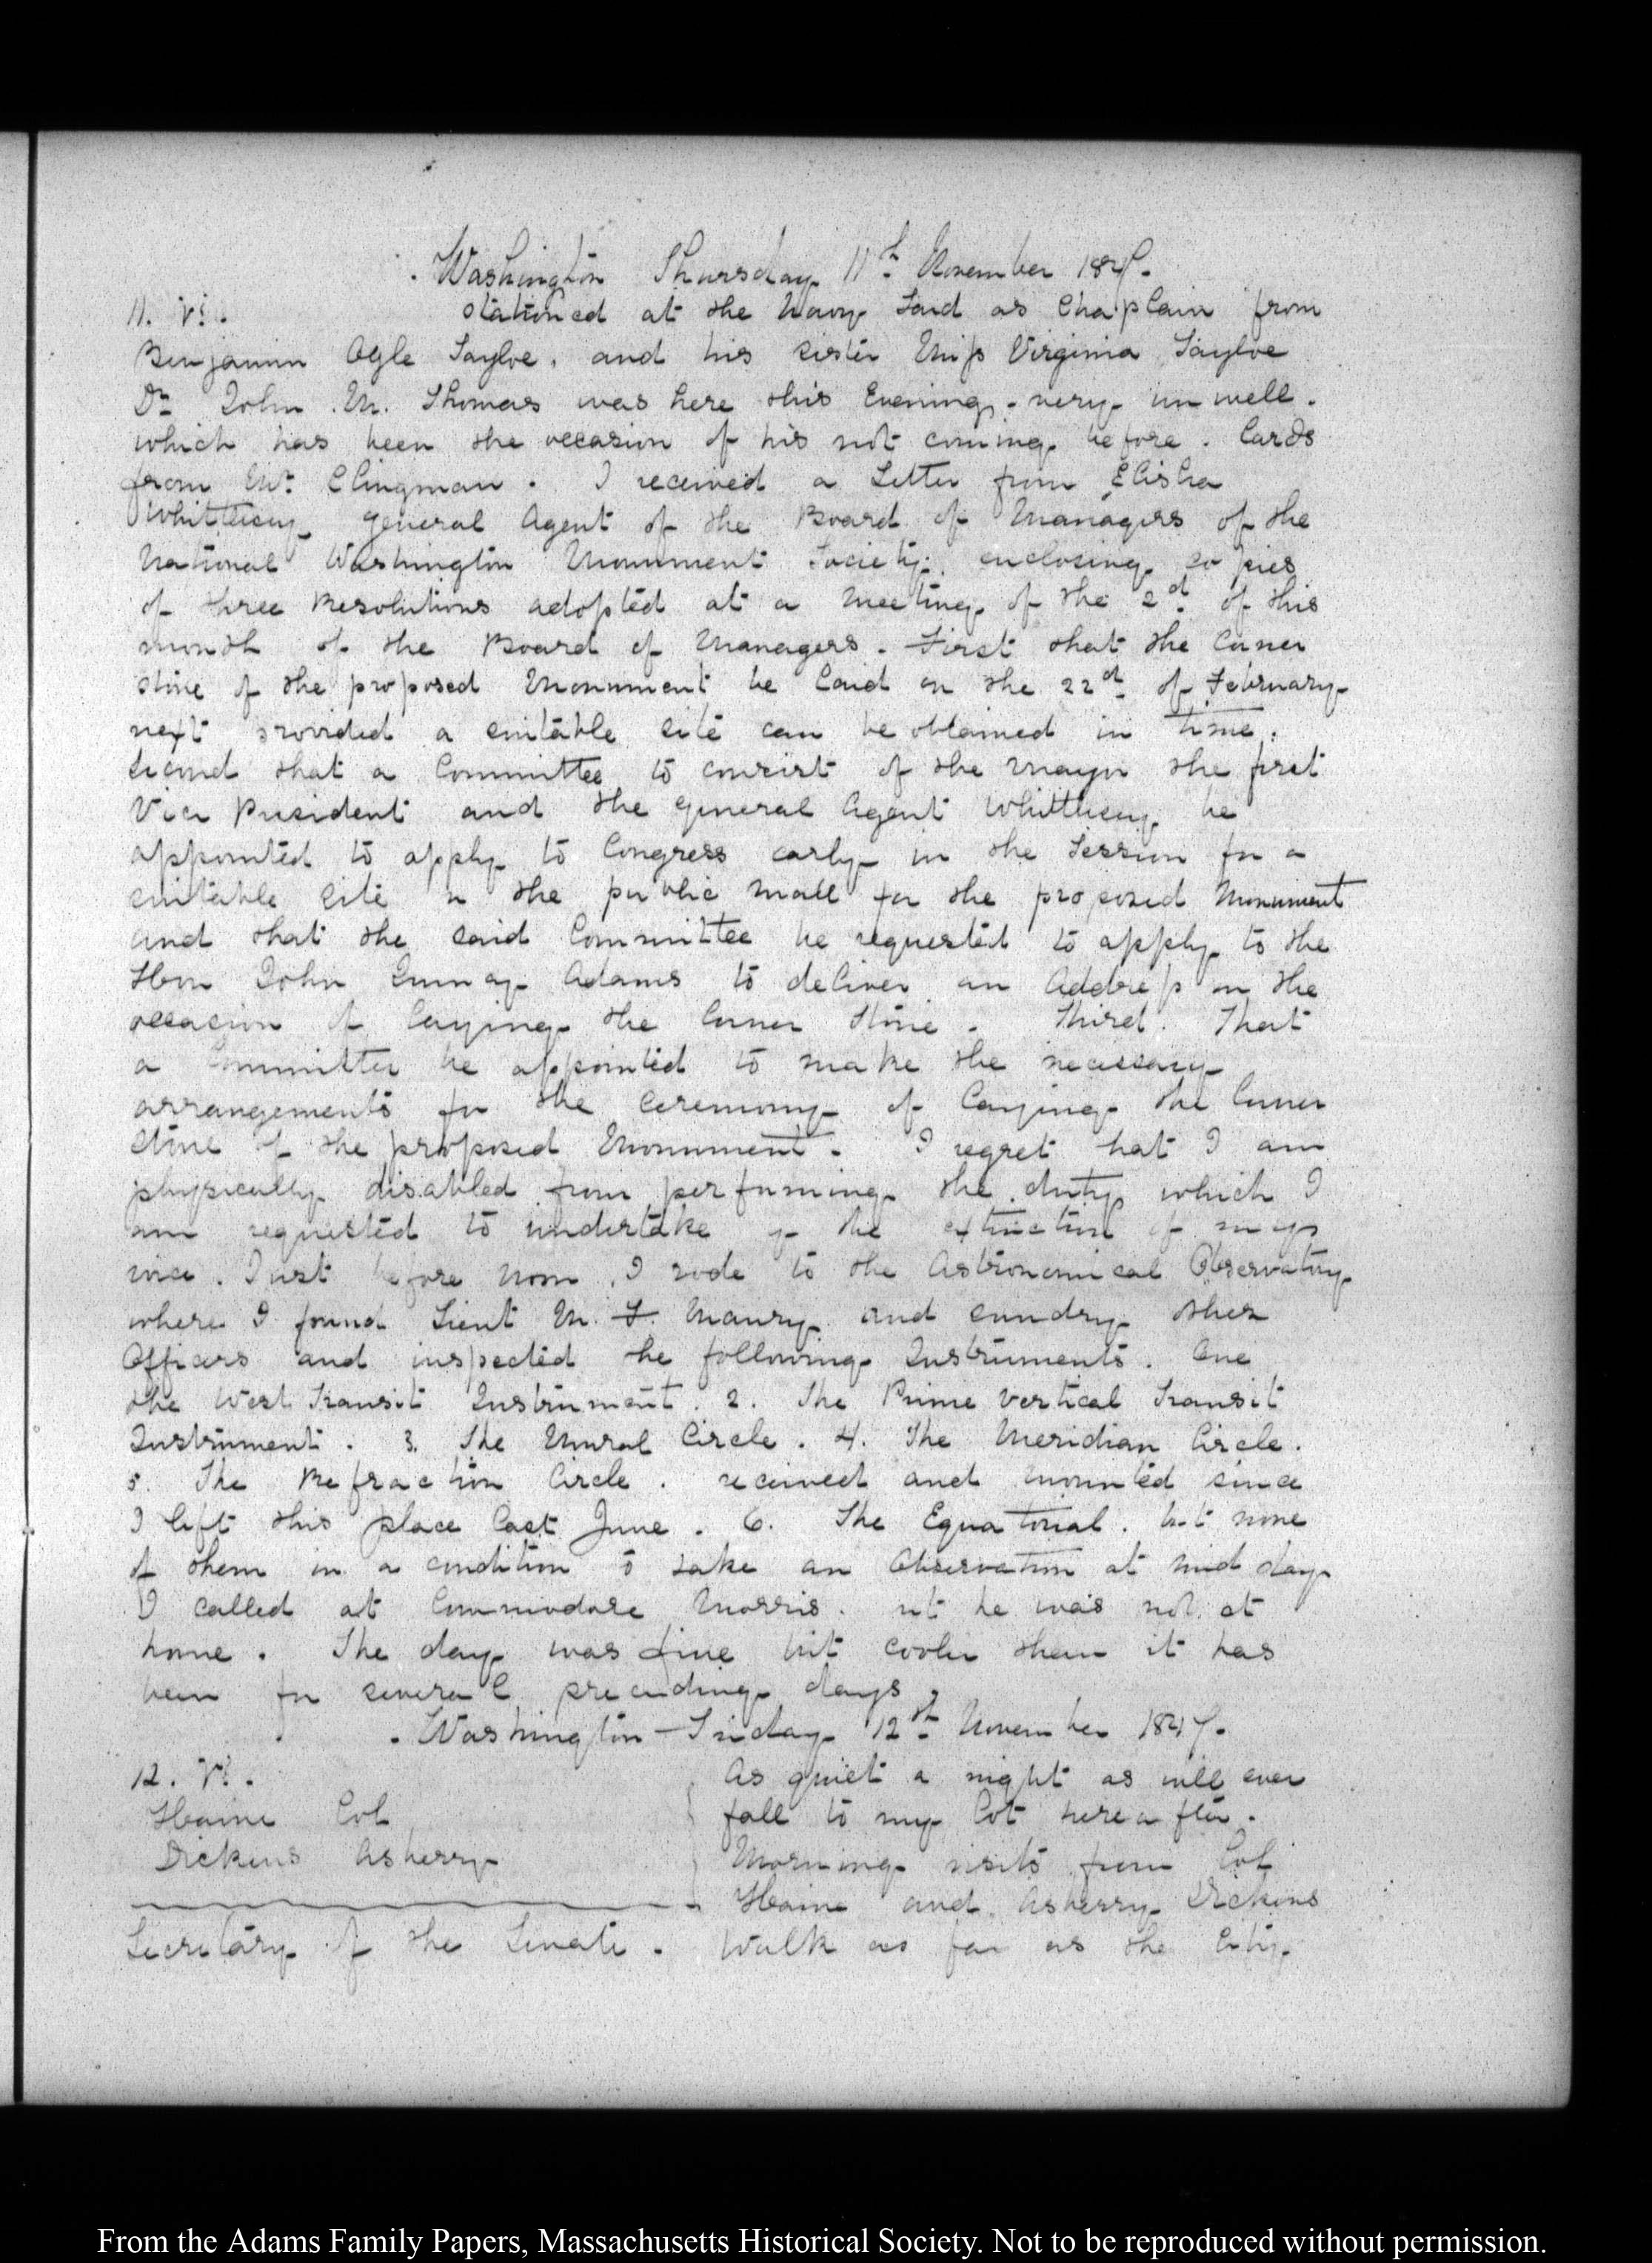 Washington Thursday 11th November 1847.
11. VI. stationed at the Navy Yard as Chaplain from
Benjamin Ogle Tayloe, and his sister Miss Virginia Tayloe
Dr. John M. Thomas was here this Evening very unwell.
which has been the occasion of his not coming before. Cards
from Mr. Clingman. I received a Letter from Elisha
Whittlesey General Agent of the Board of Managers of the
National Washington Monument Society, enclosing copies
of three Resolutions adopted at a meeting of the 2d. of this
month of the Board of Managers. First that the Corner
stone of the proposed Monument be laid on the 22d. of February
next provided a suitable site can be obtained in time.
Second that a Committee to consist of the Mayor the first
Vice President and the General Agent Whittlesey be
appointed to apply to Congress early in the Session for a
suitable site in the public Mall for the proposed Monument
and that the said Committee be requested to apply to the
Hon John Quincy Adams to deliver an Address on the
occasion of laying the Corner Stone. Third. That
a Committee be appointed to make the necessary
arrangements for the ceremony of laying the Corner
stone of the proposed Monument. I regret that I am
physically disabled from performing the duty which I
am requested to undertake by the extinction of my
voice. Just before noon, I rode to the Astronomical Observatory
where I found Lieut M. F. Maury and sundry other
Officers and inspected the following Instruments. One
the West Transit Instrument. 2. The Prime Vertical Transit
Instrument. 3. The Mural Circle. 4. The Meridian Circle.
5. The Refraction Circle. received and mounted since
I left this place last June. 6. The Equatorial. but none
of them in a condition to take an Observation at mid day
I called at Commodore Morris. but he was not at
home. The day was fine but cooler than it has
been for several preceding days.
Washington Friday 12th November 1847.
12. VI. As quiet a night as will ever
Hoine Col fall to my lot hereafter.
Dickins Asberry Morning visits from Col
Hoine and Asberry Dickins
Secretary of the Senate. Walk as far as the City
From the Adams Family Papers, Massachusetts Historical Society. Not to be reproduced without permission.